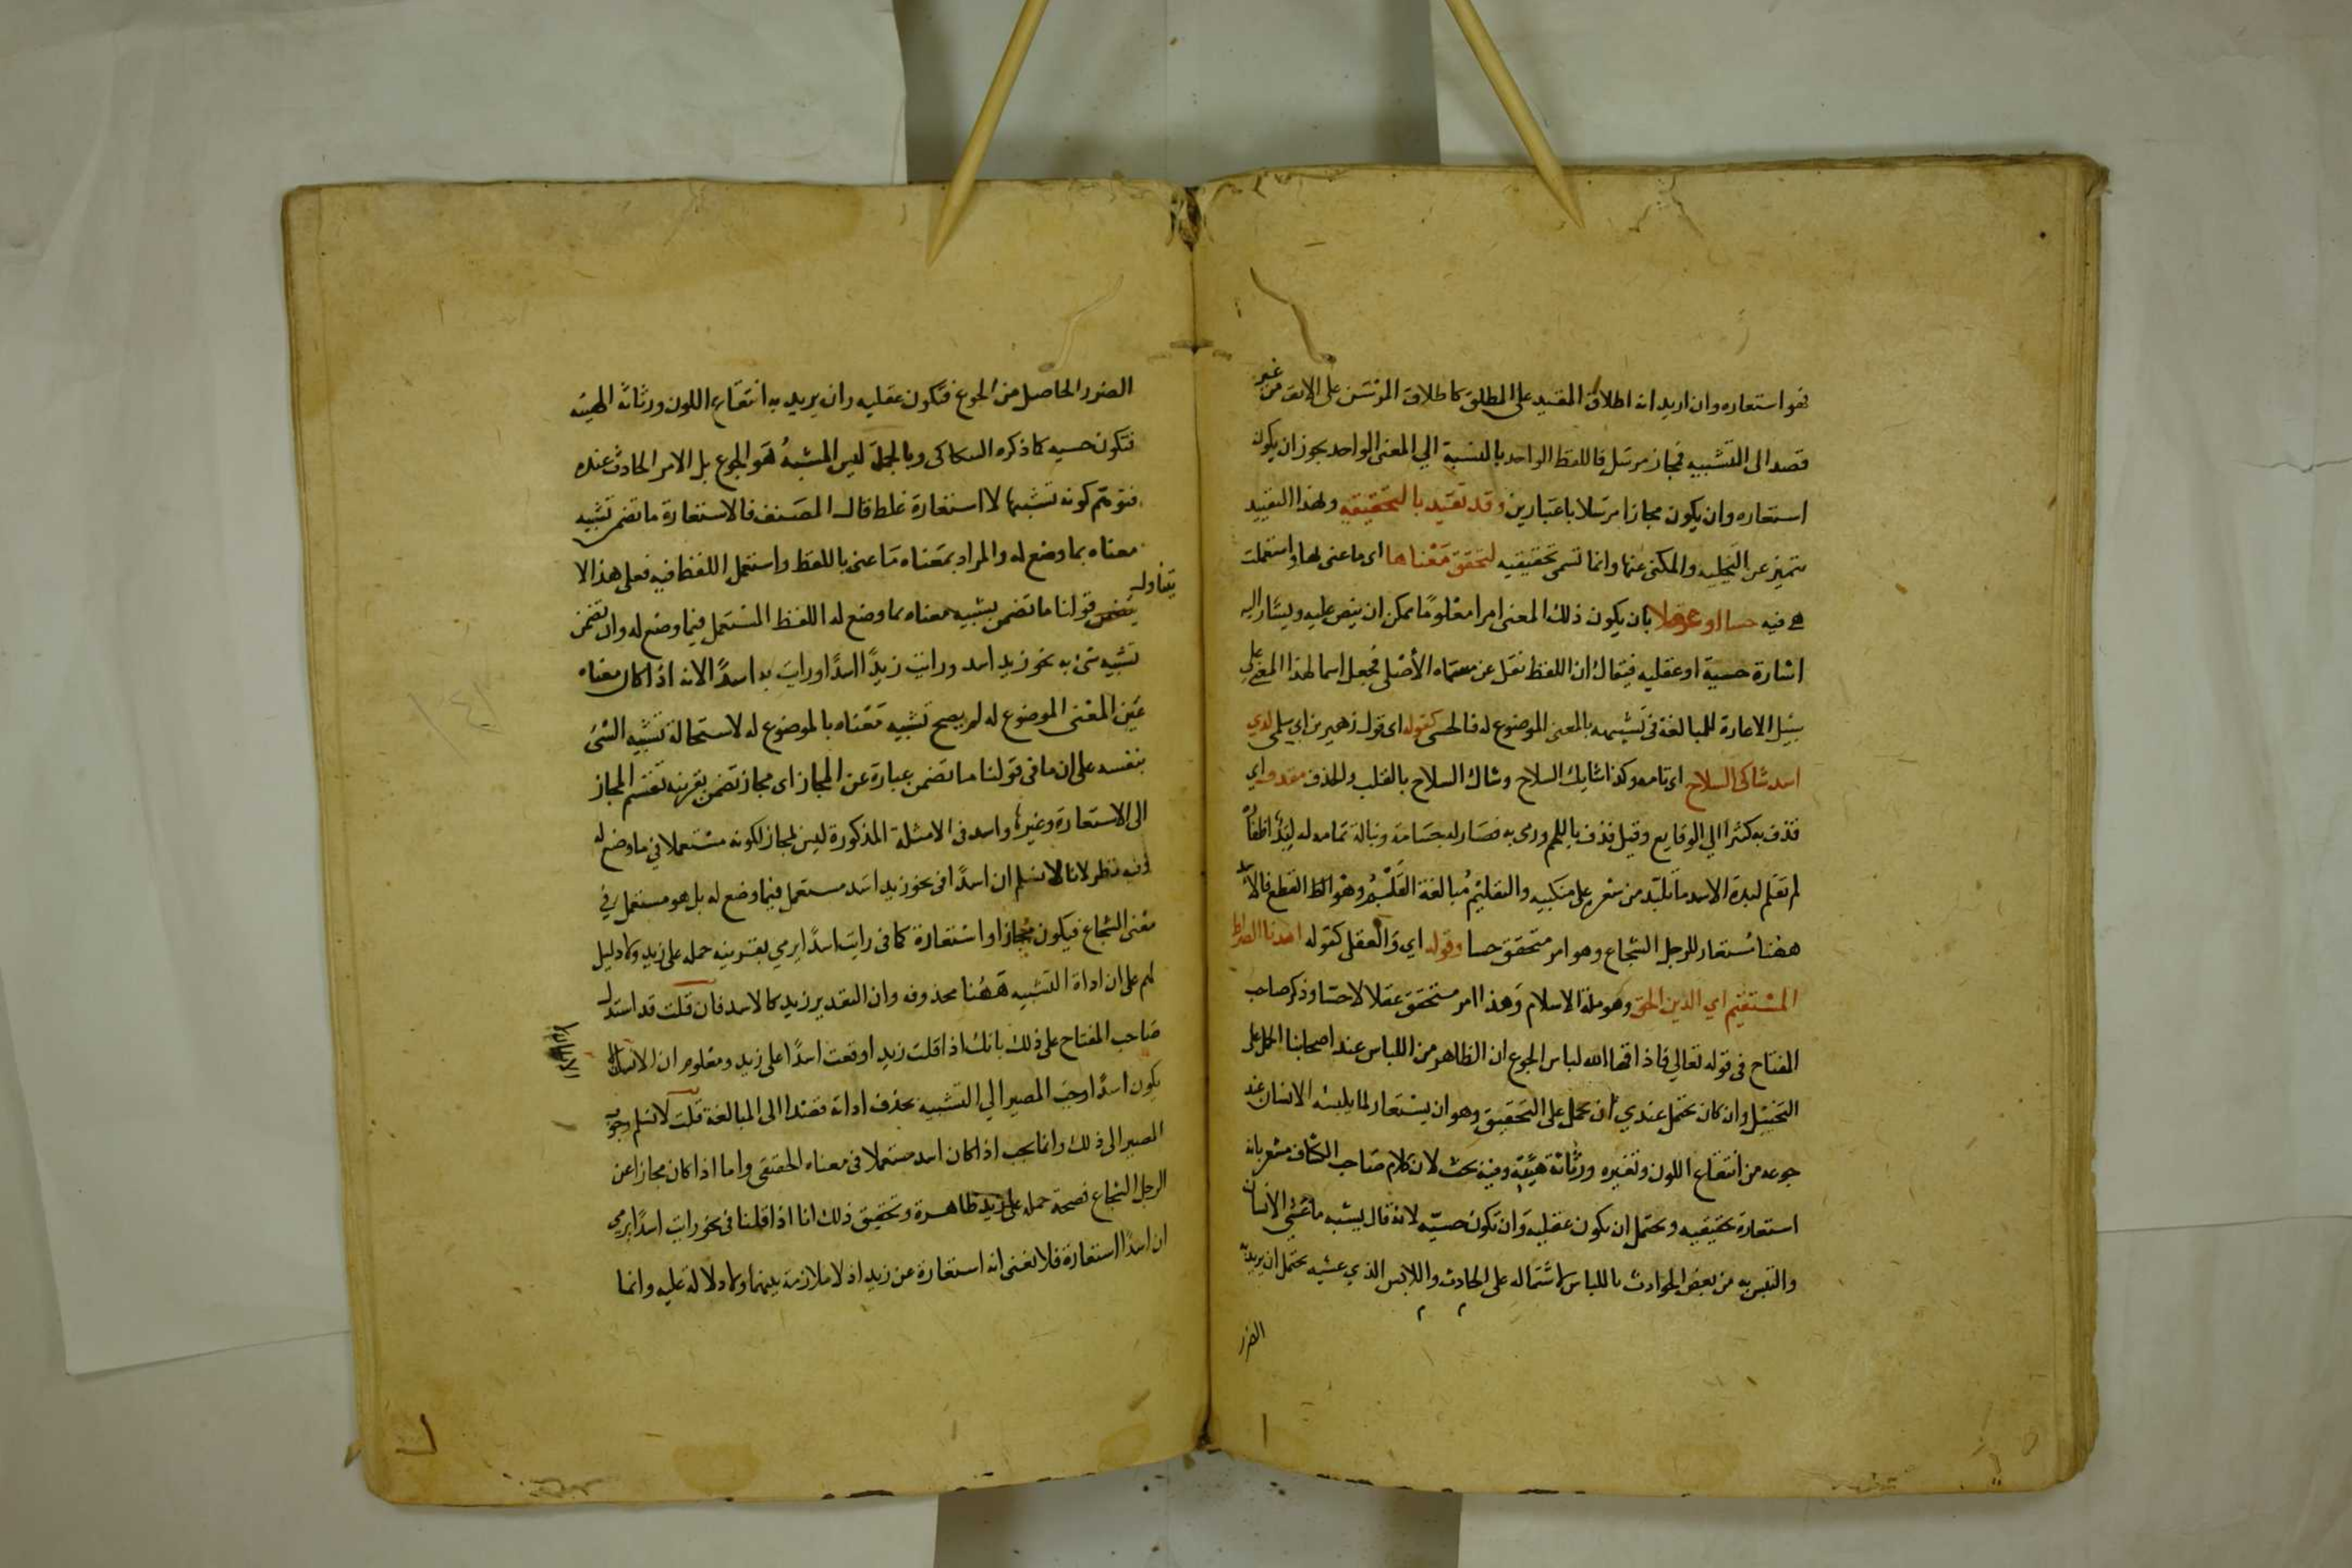 فهو استعاره وان اريد انه اطلاق المقيد على المطلق كاطلاق المرسن على الانف من غير
قصد الى التشبيه فمجاز مرسل فاللفظ الواحد بالنسبة الي المعنى الواحد يجوز ان يكون
استعاره وان يكون مجازا مرسلا باعتبارين وقد تقيد بالتحقيقيه وبهذا التقييد
تتميز عن التخيليه والمكنى عنها وانما تسمى تحقيقيه لتحقق معناها اى ما عنى بها واستعملت
هي فيه حسا او عقلا بان يكون ذلك المعنى امرا معلوما يمكن ان ينص عليه ويشار اليه
اشارة حسية او عقليه فيقال ان اللفظ نقل عن مسماه الأصلي فجعل اسما لهذا المعنى على
سبيل الاعارة للمبالغة فى تشبيهه بالمعنى الموضوع له فالحسى كقوله اى قول زهير بن ابي سلمى لدي
اسد شاكى السلاح اى تامه وكذا شايك السلاح وشاك السلاح بالقلب والحذف مقذف اي
قذف به كثيرا الي الوقايع وقيل قذف باللحم ورمى به فصار له جسامة ونبالة تمامه له لبد اظفاره
لم تقلم لبدة الاسد ما تلبد من شعره على منكبيه والتقليم مبالغة القلم وهو القطع فالاسد
ههنا مستعار للرجل الشجاع وهو امر متحقق حسا وقوله اي والعقلى كقوله اهدنا الصراط
المستقيم اي الدين الحق وهو ملة الاسلام وهذا امر متحقق عقلا لا حسا وذكر صاحب
المفتاح فى قوله تعالي فاذاقها الله لباس الجوع ان الظاهر من اللباس عند اصحابنا الحمل على
التخييل وان كان يحتمل عندي ان يحمل على التحقيق وهو ان يستعار لما يلبسه الانسان عند
جوعه من انتقاع اللون وتغيره ورثاثة هيئته وفيه بحث لان كلام صاحب الكشاف مشعر بانه
استعارة تحقيقيه ويحتمل ان يكون عقلية وان تكون حسيه لانه قال يشبه ما غشي الانسان
والتبس به من بعض الحوادث باللباس لاشتماله على الحادث واللابس الذي غشيه يحتمل ان يريد به
الضرر
الضرر الحاصل من الجوع فتكون عقليه وان يريد به انتقاع اللون ورثاثة الهيئه
فتكون حسيه كما ذكره السكاكى وبالجملة ليس المشبه هو الجوع بل الامر الحادث عنده
فتوهم كونه تشبيها لا استعارة غلط قال المصنف فالاستعارة ما تضمن تشبيه
معناه بما وضع له والمراد بمعناه ما عنى باللفظ واستعمل اللفظ فيه فعلى هذا لا
يتناول قولنا ما تضمن تشبيه معناه بما وضع له اللفظ المستعمل فيما وضع له وان تضمن
تشبيه شئ به نحو زيد اسد ورايت زيدا اسدا ورايت به اسدا لانه اذا كان معناه
عين المعنى الموضوع له لم يصح تشبيه معناه بالموضوع له لاستحالة تشبيه الشئ
بنفسه على ان ما فى قولنا ما تضمن عبارة عن المجاز اى مجاز تضمن بقرينة تقسيم المجاز
الى الاستعارة وغيرها واسد فى الامثلة المذكورة ليس لمجاز لكونه مستعملا في ما وضع له
وفيه نظر لانا لا نسلم ان اسدا فى نحو زيد اسد مستعمل فيما وضع له بل هو مستعمل في
معنى الشجاع فيكون مجازا او استعارة كما فى رايت اسدا يرمي بقرينة حمله على زيد ولا دليل
لهم على ان اداة التشبيه ههنا محذوفه وان التقدير زيد كالاسد فان قلت قد استدل
صاحب المفتاح على ذلك بانك اذا قلت زيد اوقعت اسدا على زيد ومعلوم ان الانسان لا
يكون اسدا وجب المصير الي التشبيه بحذف اداته قصدا الى المبالغة قلت لا نسلم وجوب
المصير الى ذلك وانما يجب اذا كان اسد مستعملا فى معناه الحقيقى واما اذا كان مجازا عن
الرجل الشجاع فصحة حمله على زيد ظاهرة وتحقيق ذلك انا اذا قلنا فى نحو رايت اسدا يرمي
ان اسدا استعارة فلا نعنى انه استعارة عن زيد اذ لا ملازمة بينهما ولا دلالة عليه وانما